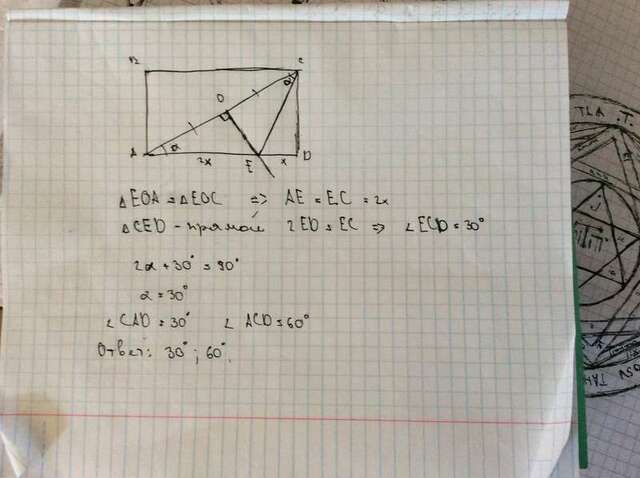 B C
O
α
A α 2x E x D
△EOA = △EOC => AE = EC = 2x
△CED - прямой 2ED = EC => ∠ECD = 30°
2α + 30° = 90°
α = 30°
∠CAD = 30° ∠ACD = 60°
Ответ: 30°; 60°.
TLA .T.